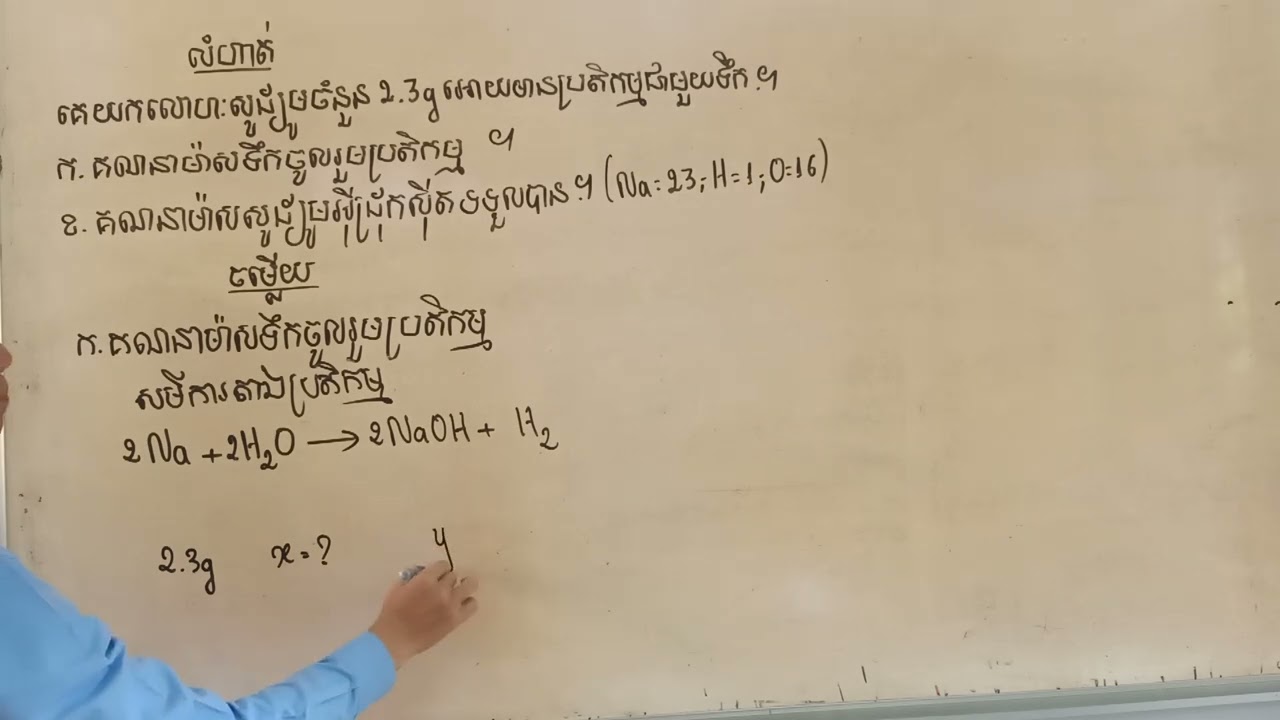 លំហាត់
គេយកលោហៈសូដ្យូមចំនួន 2.3g អោយមានប្រតិកម្មជាមួយទឹក។
ក. គណនាម៉ាសទឹកចូលរួមប្រតិកម្ម ។
ខ. គណនាម៉ាសសូដ្យូមអ៊ីដ្រុកស៊ីតទទួលបាន។ (Na=23; H=1; O=16)
ចម្លើយ
ក. គណនាម៉ាសទឹកចូលរួមប្រតិកម្ម
សមីការតាងប្រតិកម្ម
2Na + 2H₂O → 2NaOH + H₂
2.3g x=? y